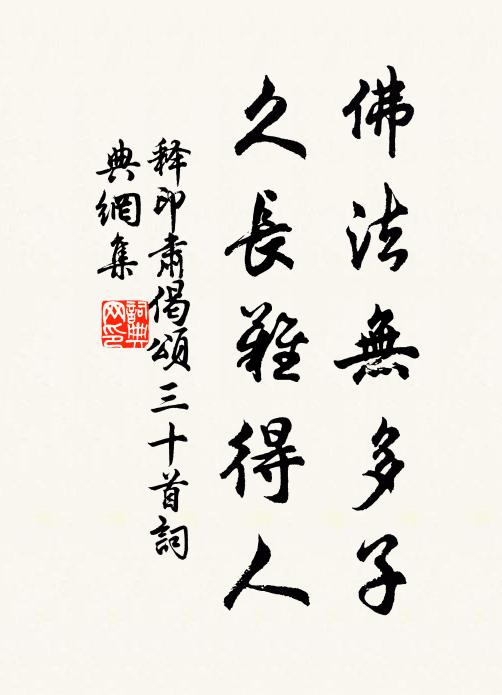 佛法無多子
久長難得人
释印肅偈頌三十首詞
典網集
詞典網印